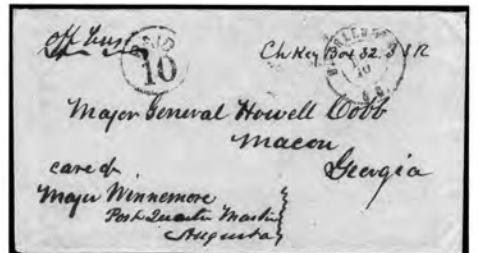 Off Bus
PAID
10
Ch Key Box 32. S S R
Major General Howell Cobb
Macon
Georgia
care of
Major Winnemore
Post Quarter Master
Augusta